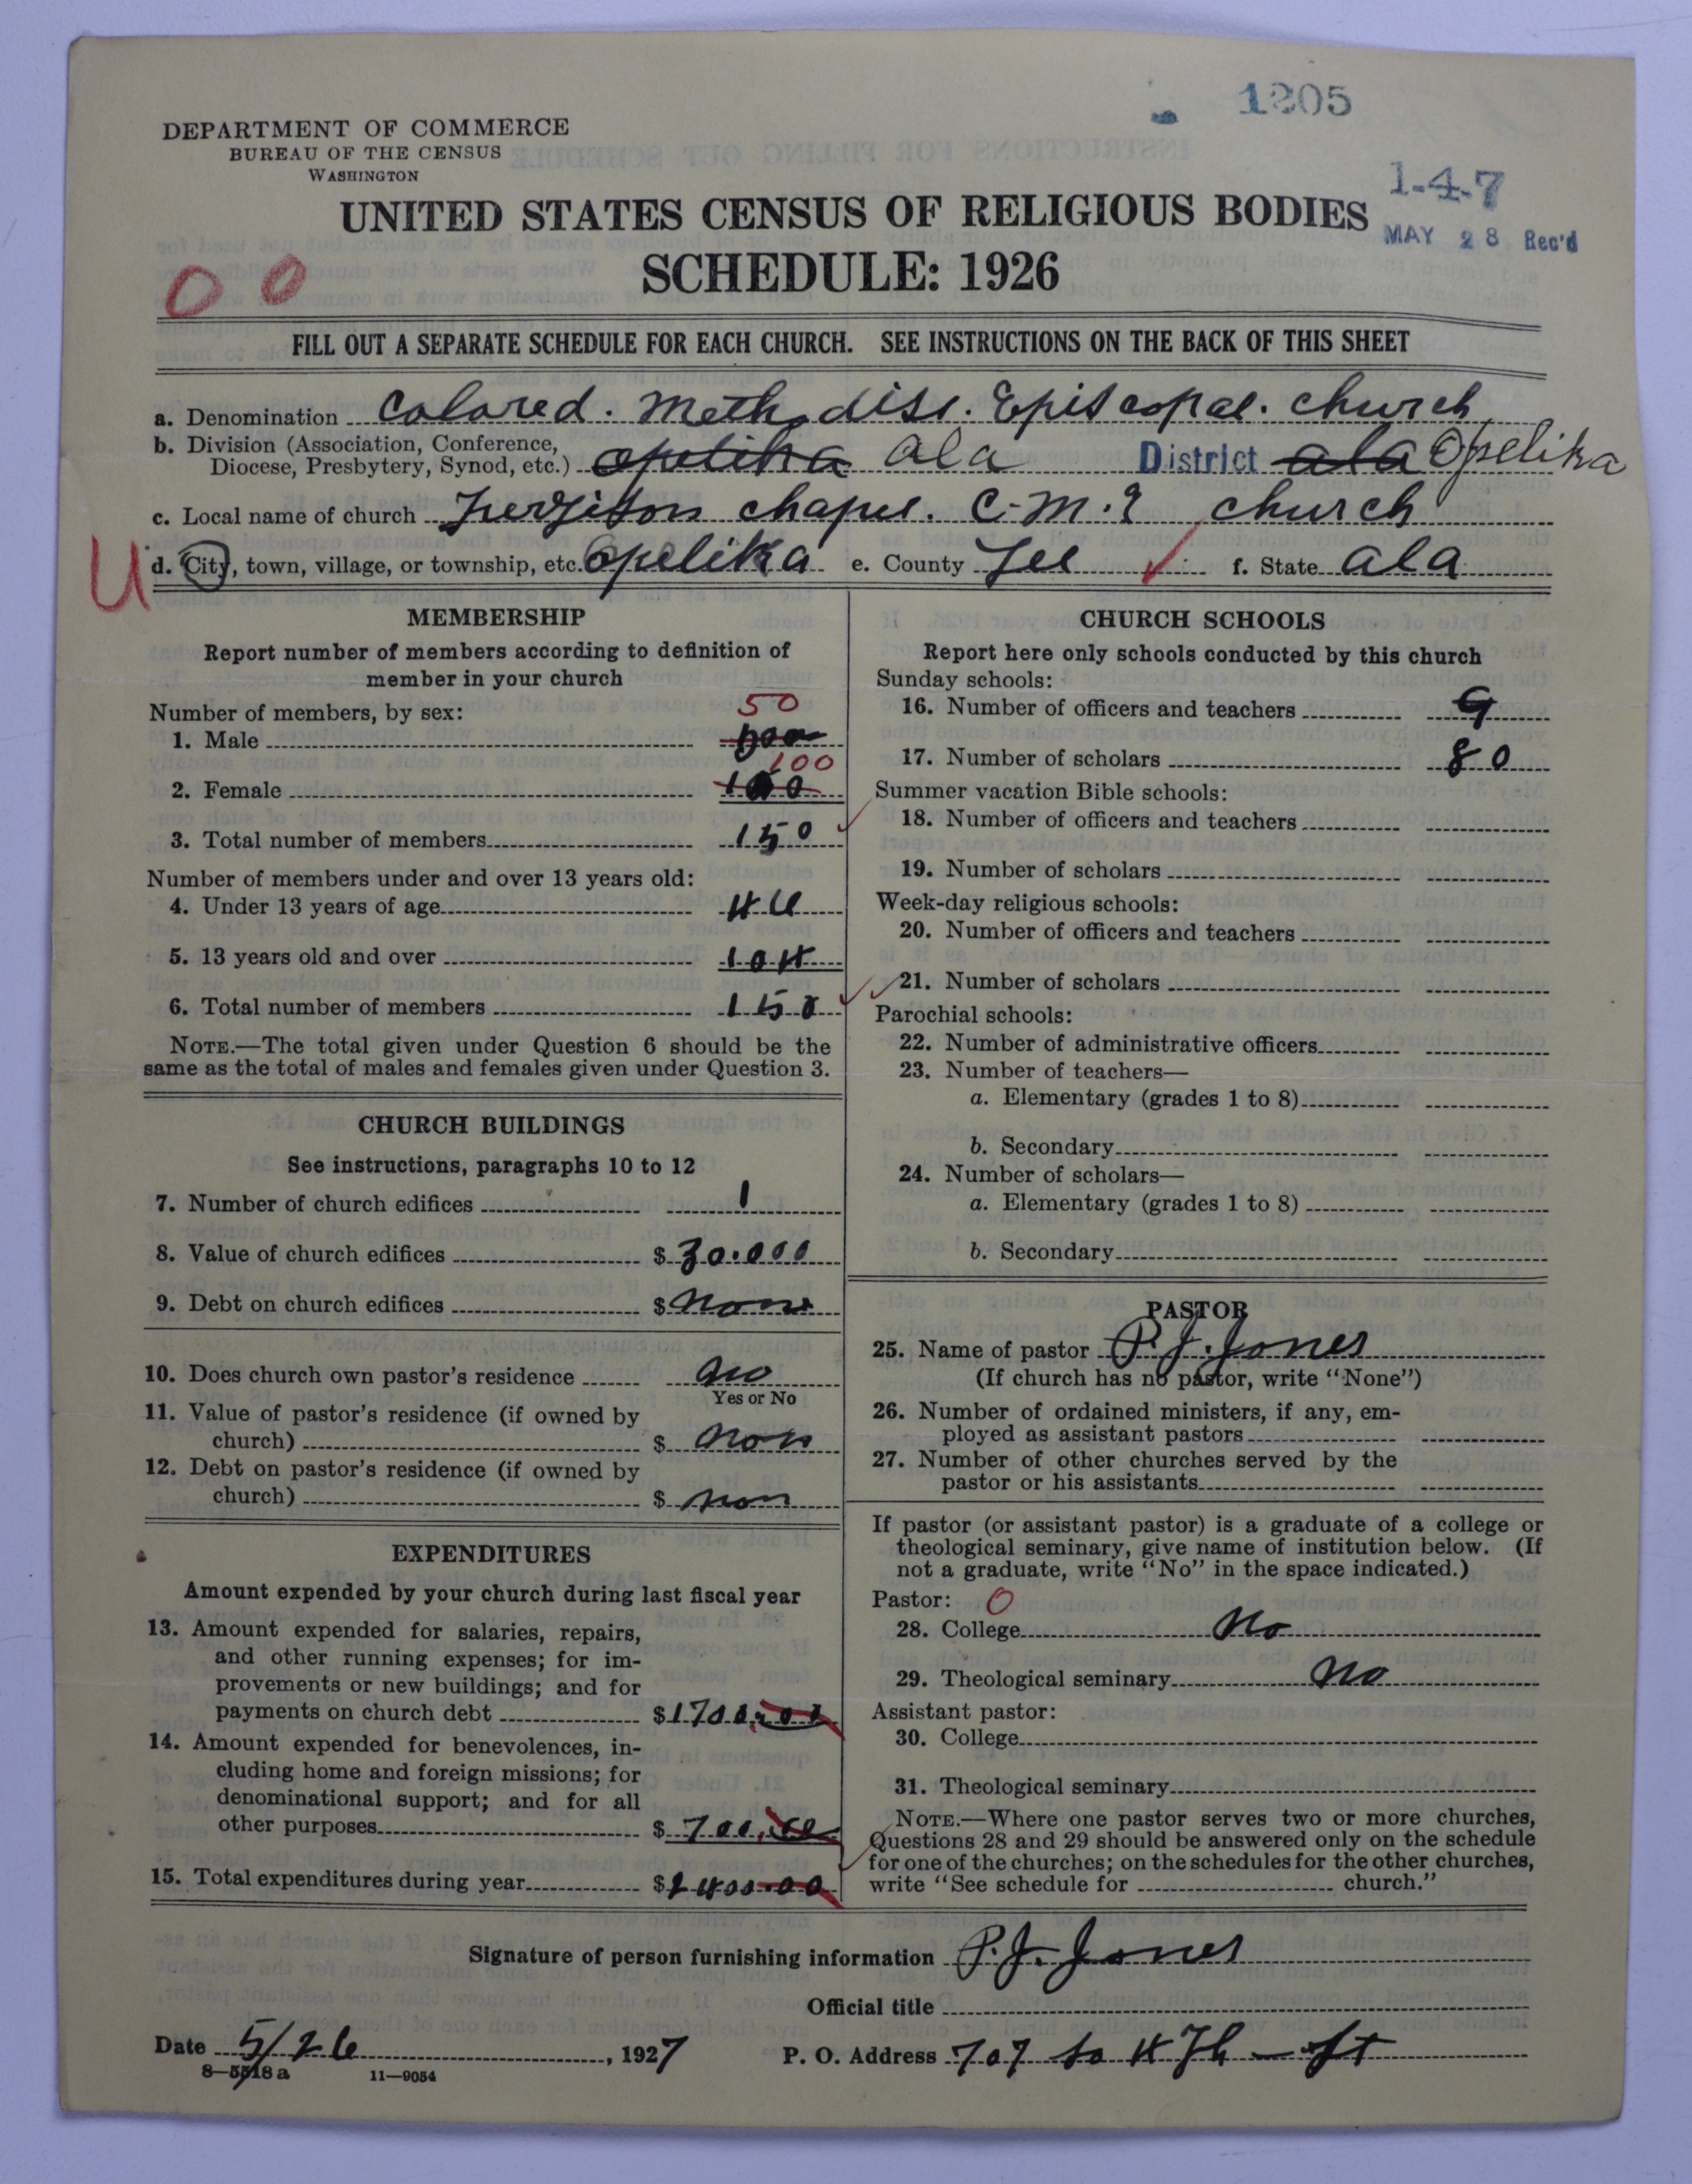 1205
DEPARTMENT OF COMMERCE
BUREAU OF THE CENSUS
WASHINGTON
1-4-7
UNITED STATES CENSUS OF RELIGIOUS BODIES
MAY 28 Rec'd
SCHEDULE: 1926
0 0
FILL OUT A SEPARATE SCHEDULE FOR EACH CHURCH. SEE INSTRUCTIONS ON THE BACK OF THIS SHEET
a. Denomination Colored. Methodist. Episcopal. church
b. Division (Association, Conference,
Diocese, Presbytery, Synod, etc.) opelika ala District ala Opelika
c. Local name of church chapel. C. M. E church
U d. City, town, village, or township, etc. opelika e. County Lee f. State ala
MEMBERSHIP
Report number of members according to definition of
member in your church
Number of members, by sex:
50
1. Male
100
2. Female 100
3. Total number of members 150
Number of members under and over 13 years old:
4. Under 13 years of age 46
5. 13 years old and over 104
6. Total number of members 150
NOTE.—The total given under Question 6 should be the
same as the total of males and females given under Question 3.
CHURCH BUILDINGS
See instructions, paragraphs 10 to 12
7. Number of church edifices 1
8. Value of church edifices $ 30.000
9. Debt on church edifices $ none
10. Does church own pastor's residence no
Yes or No
11. Value of pastor's residence (if owned by
church) $ non
12. Debt on pastor's residence (if owned by
church) $ non
EXPENDITURES
Amount expended by your church during last fiscal year
13. Amount expended for salaries, repairs,
and other running expenses; for im-
provements or new buildings; and for
payments on church debt $ 1700.00
14. Amount expended for benevolences, in-
cluding home and foreign missions; for
denominational support; and for all
other purposes $ 700.00
15. Total expenditures during year $ 2400.00
CHURCH SCHOOLS
Report here only schools conducted by this church
Sunday schools:
16. Number of officers and teachers 9
17. Number of scholars 80
Summer vacation Bible schools:
18. Number of officers and teachers
19. Number of scholars
Week-day religious schools:
20. Number of officers and teachers
21. Number of scholars
Parochial schools:
22. Number of administrative officers
23. Number of teachers—
a. Elementary (grades 1 to 8)
b. Secondary
24. Number of scholars—
a. Elementary (grades 1 to 8)
b. Secondary
PASTOR
25. Name of pastor P. J. Jones
(If church has no pastor, write "None")
26. Number of ordained ministers, if any, em-
ployed as assistant pastors
27. Number of other churches served by the
pastor or his assistants
If pastor (or assistant pastor) is a graduate of a college or
theological seminary, give name of institution below. (If
not a graduate, write "No" in the space indicated.)
Pastor: 0
28. College No
29. Theological seminary No
Assistant pastor:
30. College
31. Theological seminary
NOTE.—Where one pastor serves two or more churches,
Questions 28 and 29 should be answered only on the schedule
for one of the churches; on the schedules for the other churches,
write "See schedule for church."
Signature of person furnishing information P. J. Jones
Official title
Date 5/26, 1927 P. O. Address 707 So 4 Th - St
8—5518 a 11—9054